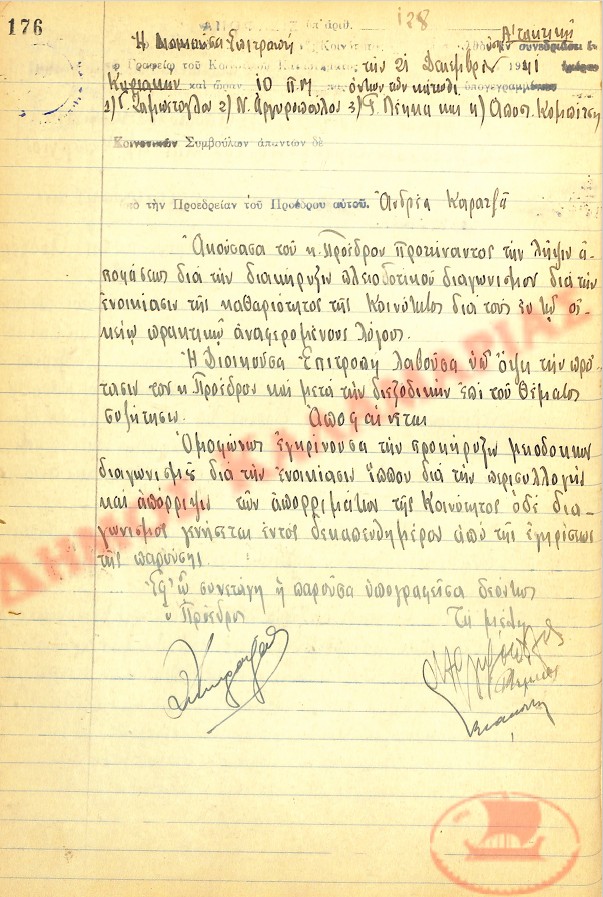 176
128
Ἡ Διοικοῦσα Ἐπιτροπὴ Κοινότητος συνεδριάσει ἐν
τῷ Γραφείῳ τοῦ Κοιν. τὴν 21 Δεκεμβρίου 1941 ἡμέραν
Κυριακὴν καὶ ὥραν 10 π.μ. ὄντων τῶν κάτωθι ὑπογεγραμμένων
1) Γ. 2) Ν. Ἀργυροπούλου 3) Γ. Πέππα καὶ 4) Ἀποστ. Κομπίτση
Κοινοτικῶν Συμβούλων ἁπάντων δὲ
ὑπὸ τὴν Προεδρείαν τοῦ Προέδρου αὐτοῦ. Ἀνδρέα Καρατζᾶ
Ἀκούσασα τοῦ κ. Προέδρου προτείναντος τὴν λῆψιν ἀ-
ποφάσεως διὰ τὴν διακήρυξιν μειοδοτικοῦ διαγωνισμοῦ διὰ τὴν
ἐνοικίασιν τῆς καθαριότητος τῆς Κοινότητος διὰ τοὺς ἐν τῷ οἰ-
κείῳ πρακτικῷ ἀναφερομένους λόγους.
Ἡ Διοικοῦσα Ἐπιτροπὴ λαβοῦσα ὑπ' ὄψει τὴν πρό-
τασιν του κ. Προέδρου καὶ μετὰ τὴν διεξοδικὴν ἐπὶ τοῦ θέματος
συζήτησιν. Ἀποφαίνεται
Ὁμοφώνως ἐγκρίνουσα τὴν προκήρυξιν μειοδοτικοῦ
διαγωνισμοῦ διὰ τὴν ἐνοικίασιν ἵππου διὰ τὴν περισυλλογὴν
καὶ ἀπόρριψιν τῶν ἀπορριμάτων τῆς Κοινότητος ὁ δὲ δια-
γωνισμὸς γενήσεται ἐντὸς δεκαπενθημέρου ἀπὸ τῆς ἐγκρίσεως
τῆς παρούσης.
Ἐφ' ᾧ συνετάγη ἡ παροῦσα ὑπογραφεῖσα δεόντως
ὁ Πρόεδρος Τὰ μέλη
ΔΗΜΟΣ ΚΑΛΑΜΑΡΙΑΣ